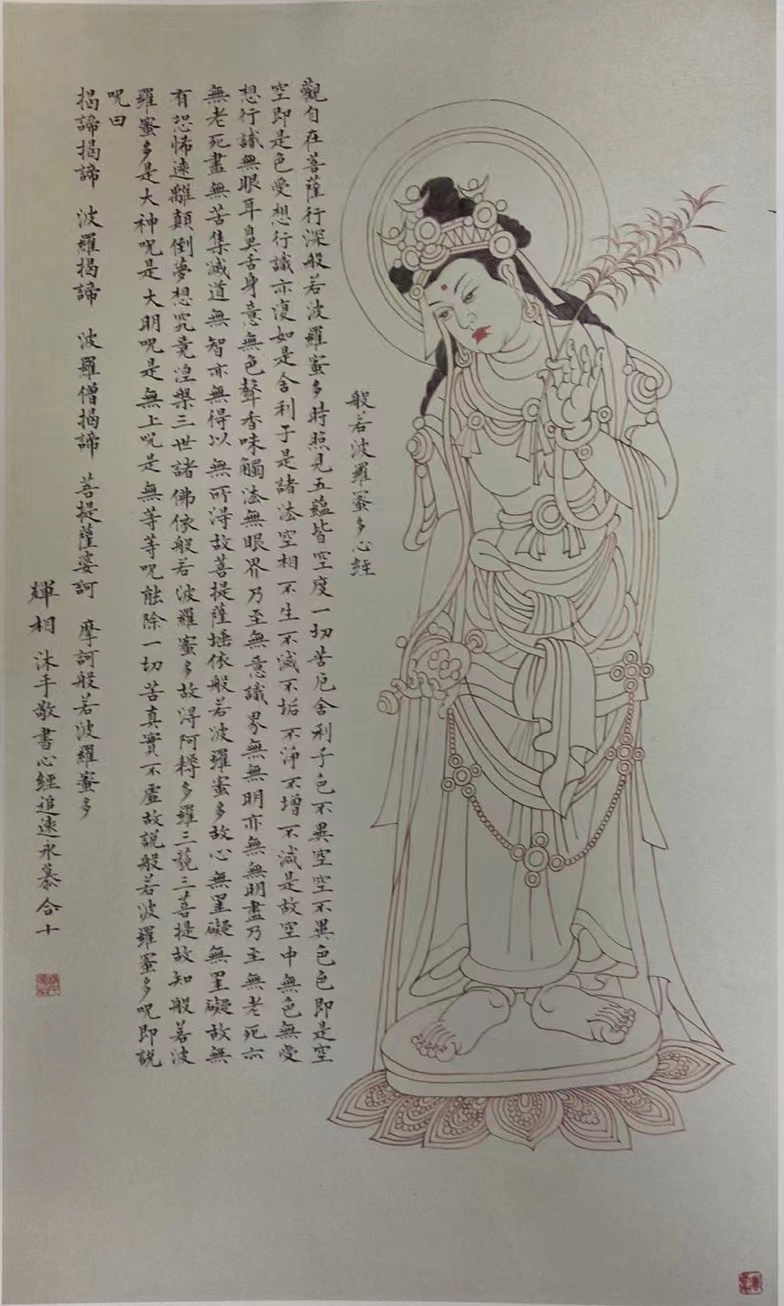 般若波羅蜜多心經
觀自在菩薩行深般若波羅蜜多時照見五蘊皆空度一切苦厄舍利子色不異空空不異色色即是空
空即是色受想行識亦復如是舍利子是諸法空相不生不滅不垢不淨不增不減是故空中無色無受
想行識無眼耳鼻舌身意無色聲香味觸法無眼界乃至無意識界無無明亦無無明盡乃至無老死亦
無老死盡無苦集滅道無智亦無得以無所得故菩提薩埵依般若波羅蜜多故心無罣礙無罣礙故無
有恐怖遠離顛倒夢想究竟涅槃三世諸佛依般若波羅蜜多故得阿耨多羅三藐三菩提故知般若波
羅蜜多是大神呪是大明呪是無上呪是無等等呪能除一切苦真實不虛故說般若波羅蜜多呪即說
呪曰
揭諦揭諦 波羅揭諦 波羅僧揭諦 菩提薩婆訶 摩訶般若波羅蜜多
輝相沐手敬書心經追遠永慕合十